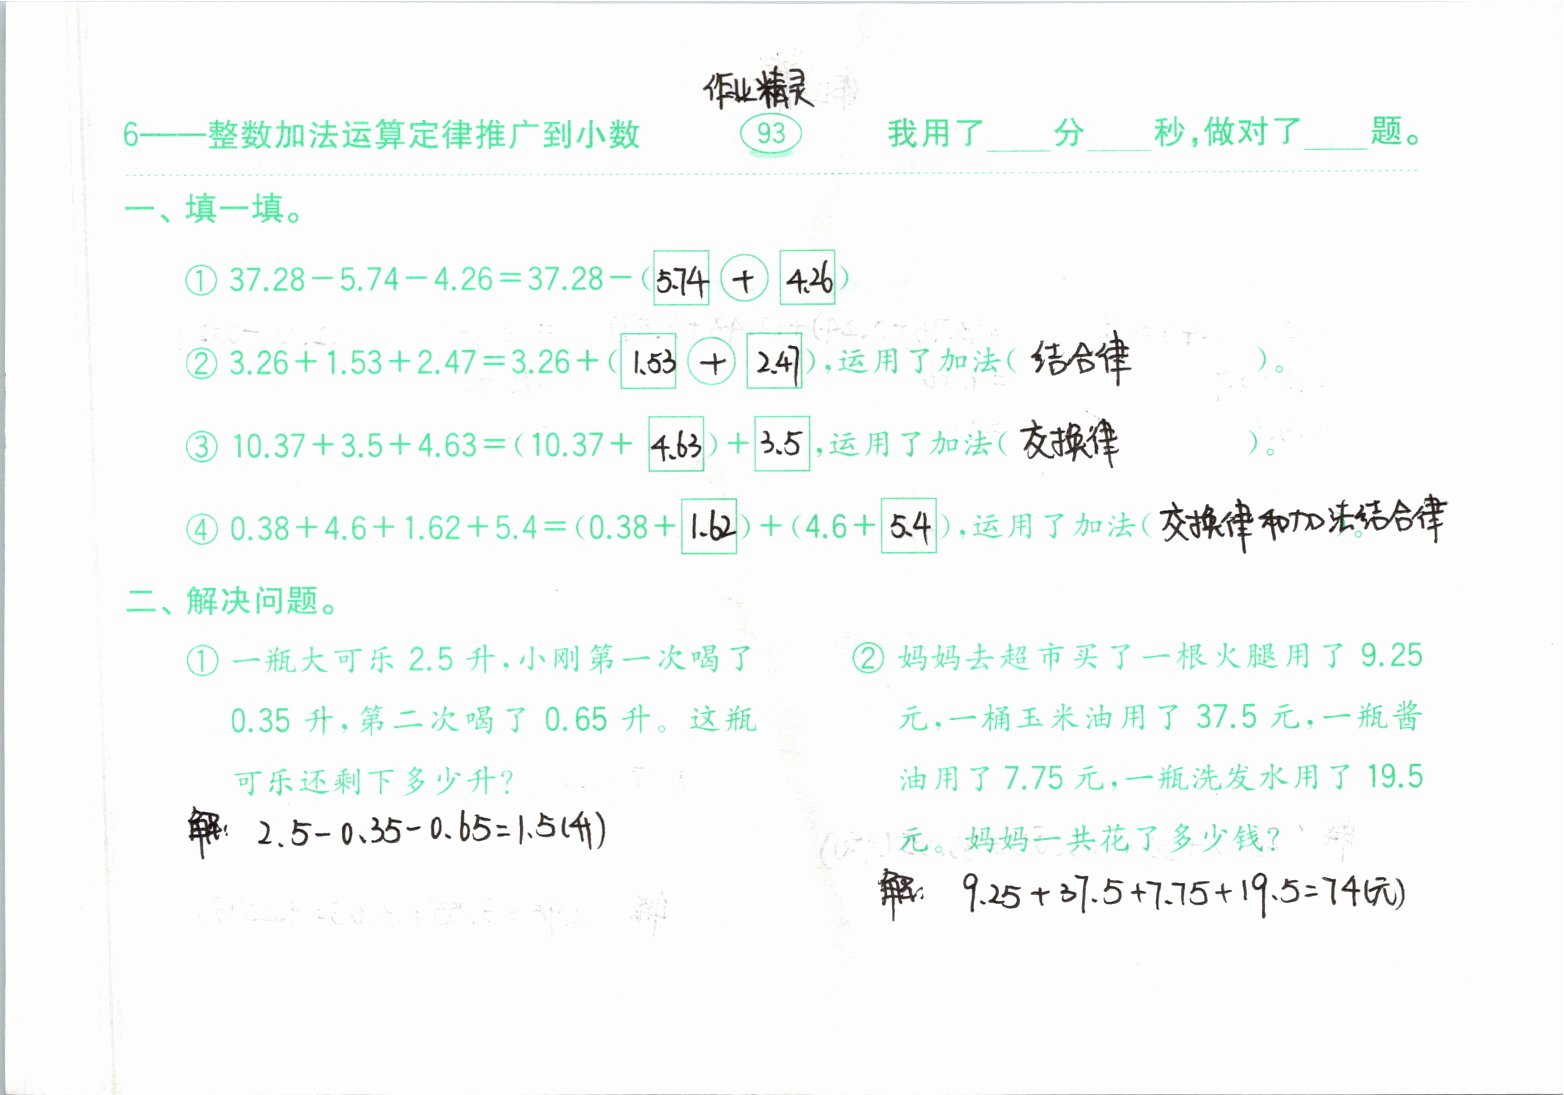 作业精灵
6——整数加法运算定律推广到小数 93 我用了____分____秒,做对了____题。
一、填一填。
① 37.28-5.74-4.26=37.28-(5.74 + 4.26)
② 3.26+1.53+2.47=3.26+(1.53 + 2.47),运用了加法( 结合律 )。
③ 10.37+3.5+4.63=(10.37+ 4.63)+3.5,运用了加法( 交换律 )。
④ 0.38+4.6+1.62+5.4=(0.38+1.62)+(4.6+5.4),运用了加法( 交换律和加法结合律 )。
二、解决问题。
① 一瓶大可乐 2.5 升,小刚第一次喝了
0.35 升,第二次喝了 0.65 升。这瓶
可乐还剩下多少升?
解: 2.5-0.35-0.65=1.5(升)
② 妈妈去超市买了一根火腿用了 9.25
元,一桶玉米油用了 37.5 元,一瓶酱
油用了 7.75 元,一瓶洗发水用了 19.5
元。妈妈一共花了多少钱?
解: 9.25+37.5+7.75+19.5=74(元)